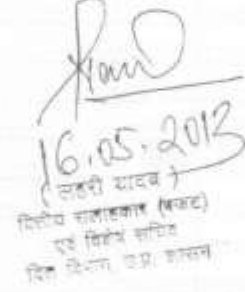 16.05.2013
( लहरी यादव )
वित्तीय सलाहकार (बजट)
एवं विशेष सचिव
वित्त विभाग, उ.प्र. शासन